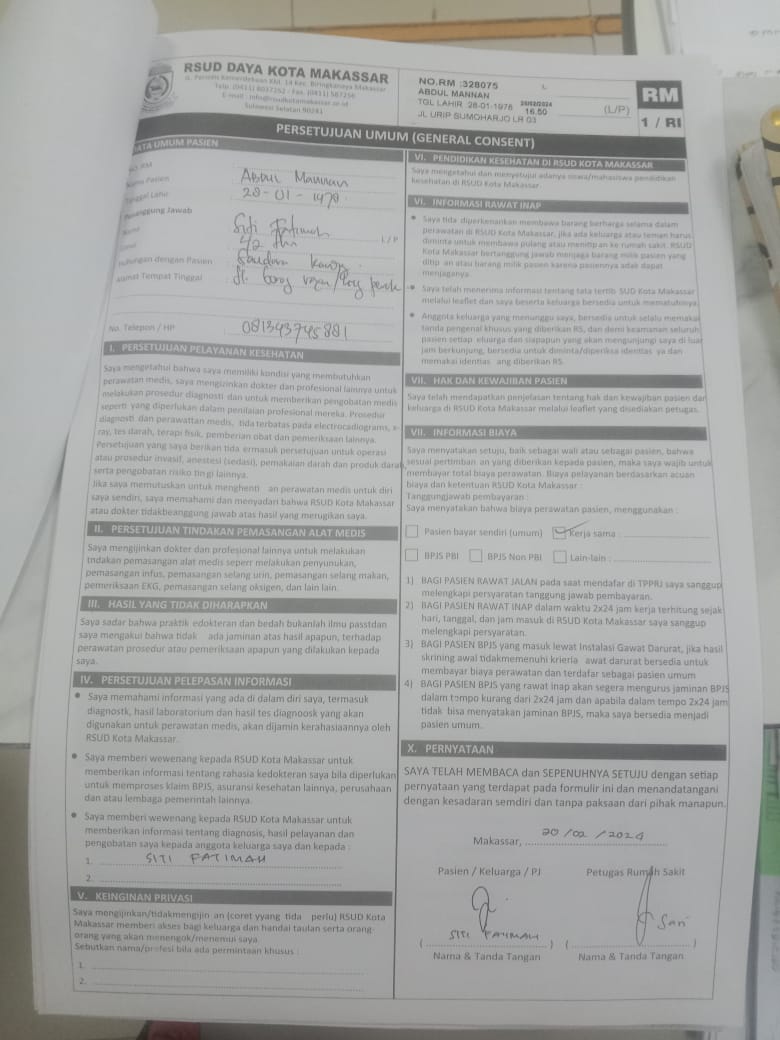 RSUD DAYA KOTA MAKASSAR
JL. Perintis Kemerdekaan KM. 14 Kec. Biringkanaya Makassar
Telp. (0411) 8037252 - Fax. (0411) 587256
E-mail : info@rsudkotamakassar.co.id
Sulawesi Selatan 90241
NO.RM :328075 L
ABDUL MANNAN
TGL LAHIR 28-01-1978
20/02/2024
16.50
(L/P)
JL URIP SUMOHARJO LR 03
RM
1 / RI
PERSETUJUAN UMUM (GENERAL CONSENT)
DATA UMUM PASIEN
NO. RM
Nama Pasien : Abdul Mannan
Tanggal Lahir : 28-01-1978
Penanggung Jawab
Nama : Siti Fatimah L / P
42 thn
Hubungan dengan Pasien : Saudara
Alamat Tempat Tinggal : Jl.
No. Telepon / HP : 081343745881
I. PERSETUJUAN PELAYANAN KESEHATAN
Saya mengetahui bahwa saya memiliki kondisi yang membutuhkan
perawatan medis, saya mengizinkan dokter dan profesional lainnya untuk
melakukan prosedur diagnosti dan untuk memberikan pengobatan medis
seperti yang diperlukan dalam penilaian profesional mereka. Prosedur
diagnosti dan perawattan medis, tida terbatas pada electrocardiograms, x-
ray, tes darah, terapi fisik, pemberian obat dan pemeriksaan lainnya.
Persetujuan yang saya berikan tida ermasuk persetujuan untuk operasi
atau prosedur invasif, anestesi (sedasi), pemakaian darah dan produk darah
serta pengobatan risiko tin gi lainnya.
Jika saya memutuskan untuk menghenti an perawatan medis untuk diri
saya sendiri, saya memahami dan menyadari bahwa RSUD Kota Makassar
atau dokter tidakbeanggung jawab atas hasil yang merugikan saya.
II. PERSETUJUAN TINDAKAN PEMASANGAN ALAT MEDIS
Saya mengijinkan dokter dan profesional lainnya untuk melakukan
tndakan pemasangan alat medis seperr melakukan penyunukan,
pemasangan infus, pemasangan selang urin, pemasangan selang makan,
pemeriksaan EKG, pemasangan selang oksigen, dan lain lain.
III. HASIL YANG TIDAK DIHARAPKAN
Saya sadar bahwa praktik edokteran dan bedah bukanlah ilmu passtdan
saya mengakui bahwa tidak ada jaminan atas hasil apapun, terhadap
perawatan prosedur atau pemeriksaan apapun yang dilakukan kepada
saya.
IV. PERSETUJUAN PELEPASAN INFORMASI
• Saya memahami informasi yang ada di dalam diri saya, termasuk
diagnostk, hasil laboratorium dan hasil tes diagnoosk yang akan
digunakan untuk perawatan medis, akan dijamin kerahasiaannya oleh
RSUD Kota Makassar.
• Saya memberi wewenang kepada RSUD Kota Makassar untuk
memberikan informasi tentang rahasia kedokteran saya bila diperlukan
untuk memproses klaim BPJS, asuransi kesehatan lainnya, perusahaan
dan atau lembaga pemerintah lainnya.
• Saya memberi wewenang kepada RSUD Kota Makassar untuk
memberikan informasi tentang diagnosis, hasil pelayanan dan
pengobatan saya kepada anggota keluarga saya dan kepada :
1. SITI FATIMAH
2.
V. KEINGINAN PRIVASI
Saya mengijinkan/tidakmengijin an (coret yyang tida perlu) RSUD Kota
Makassar memberi akses bagi keluarga dan handai taulan serta orang-
orang yang akan menengok/menemui saya.
Sebutkan nama/profesi bila ada permintaan khusus :
1.
2.
VI. PENDIDIKAN KESEHATAN DI RSUD KOTA MAKASSAR
Saya mengetahui dan menyetujui adanya siswa/mahasiswa pendidikan
kesehatan di RSUD Kota Makassar.
VI. INFORMASI RAWAT INAP
• Saya tida diperkenankan membawa barang berharga selama dalam
perawatan di RSUD Kota Makassar, jika ada keluarga atau teman harus
diminta untuk membawa pulang atau menitip an ke rumah sakit. RSUD
Kota Makassar bertanggung jawab menjaga barang milik pasien yang
ditip an atau barang milik karena pasiennya adak dapat
menjaganya.
• Saya telah menerima informasi tentang tata tertib SUD Kota Makassar
melalui leaflet dan saya beserta keluarga bersedia untuk mematuhinya.
• Anggota keluarga yang menunggu saya, bersedia untuk selalu memakai
tanda pengenal khusus yang diberikan RS, dan demi keamanan seluruh
pasien setiap eluarga dan siapapun yang akan mengunjungi saya di luar
jam berkunjung, bersedia untuk diminta/diperiksa identias ya dan
memakai identias ang diberikan RS.
VII. HAK DAN KEWAJIBAN PASIEN
Saya telah mendapatkan penjelasan tentang hak dan kewajiban pasien dan
keluarga di RSUD Kota Makassar melalui leaflet yang disediakan petugas.
VII. INFORMASI BIAYA
Saya menyatakan setuju, baik sebagai wali atau sebagai pasien, bahwa
sesuai pertimban an yang diberikan kepada pasien, maka saya wajib untuk
membayar total biaya perawatan. Biaya pelayanan berdasarkan acuan
biaya dan ketentuan RSUD Kota Makassar :
Tanggungjawab pembayaran :
Saya menyatakan bahwa biaya perawatan pasien, menggunakan :
Pasien bayar sendiri (umum) Kerja sama :
BPJS PBI BPJS Non PBI Lain-lain :
1) BAGI PASIEN RAWAT JALAN pada saat mendafar di TPPRJ saya sanggup
melengkapi persyaratan tanggung jawab pembayaran.
2) BAGI PASIEN RAWAT INAP dalam waktu 2x24 jam kerja terhitung sejak
hari, tanggal, dan jam masuk di RSUD Kota Makassar saya sanggup
melengkapi persyaratan.
3) BAGI PASIEN BPJS yang masuk lewat Instalasi Gawat Darurat, jika hasil
skrining awal tidakmemenuhi krieria awat darurat bersedia untuk
membayar biaya perawatan dan terdafar sebagai pasien umum
4) BAGI PASIEN BPJS yang rawat inap akan segera mengurus jaminan BPJS
dalam tempo kurang dari 2x24 jam dan apabila dalam tempo 2x24 jam
tidak bisa menyatakan jaminan BPJS, maka saya bersedia menjadi
pasien umum.
X. PERNYATAAN
SAYA TELAH MEMBACA dan SEPENUHNYA SETUJU dengan setiap
pernyataan yang terdapat pada formulir ini dan menandatangani
dengan kesadaran semdiri dan tanpa paksaan dari pihak manapun.
Makassar, 20/02/2024
Pasien / Keluarga / PJ Petugas Rumah Sakit
Sari
(SITI FATIMAH) ( )
Nama & Tanda Tangan Nama & Tanda Tangan